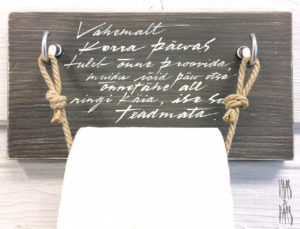 Vähemalt
korra päevas
tuleb õnne proovida,
muidu võid päev otsa
õnnetähe all
ringi käia, ise se
teadmata.